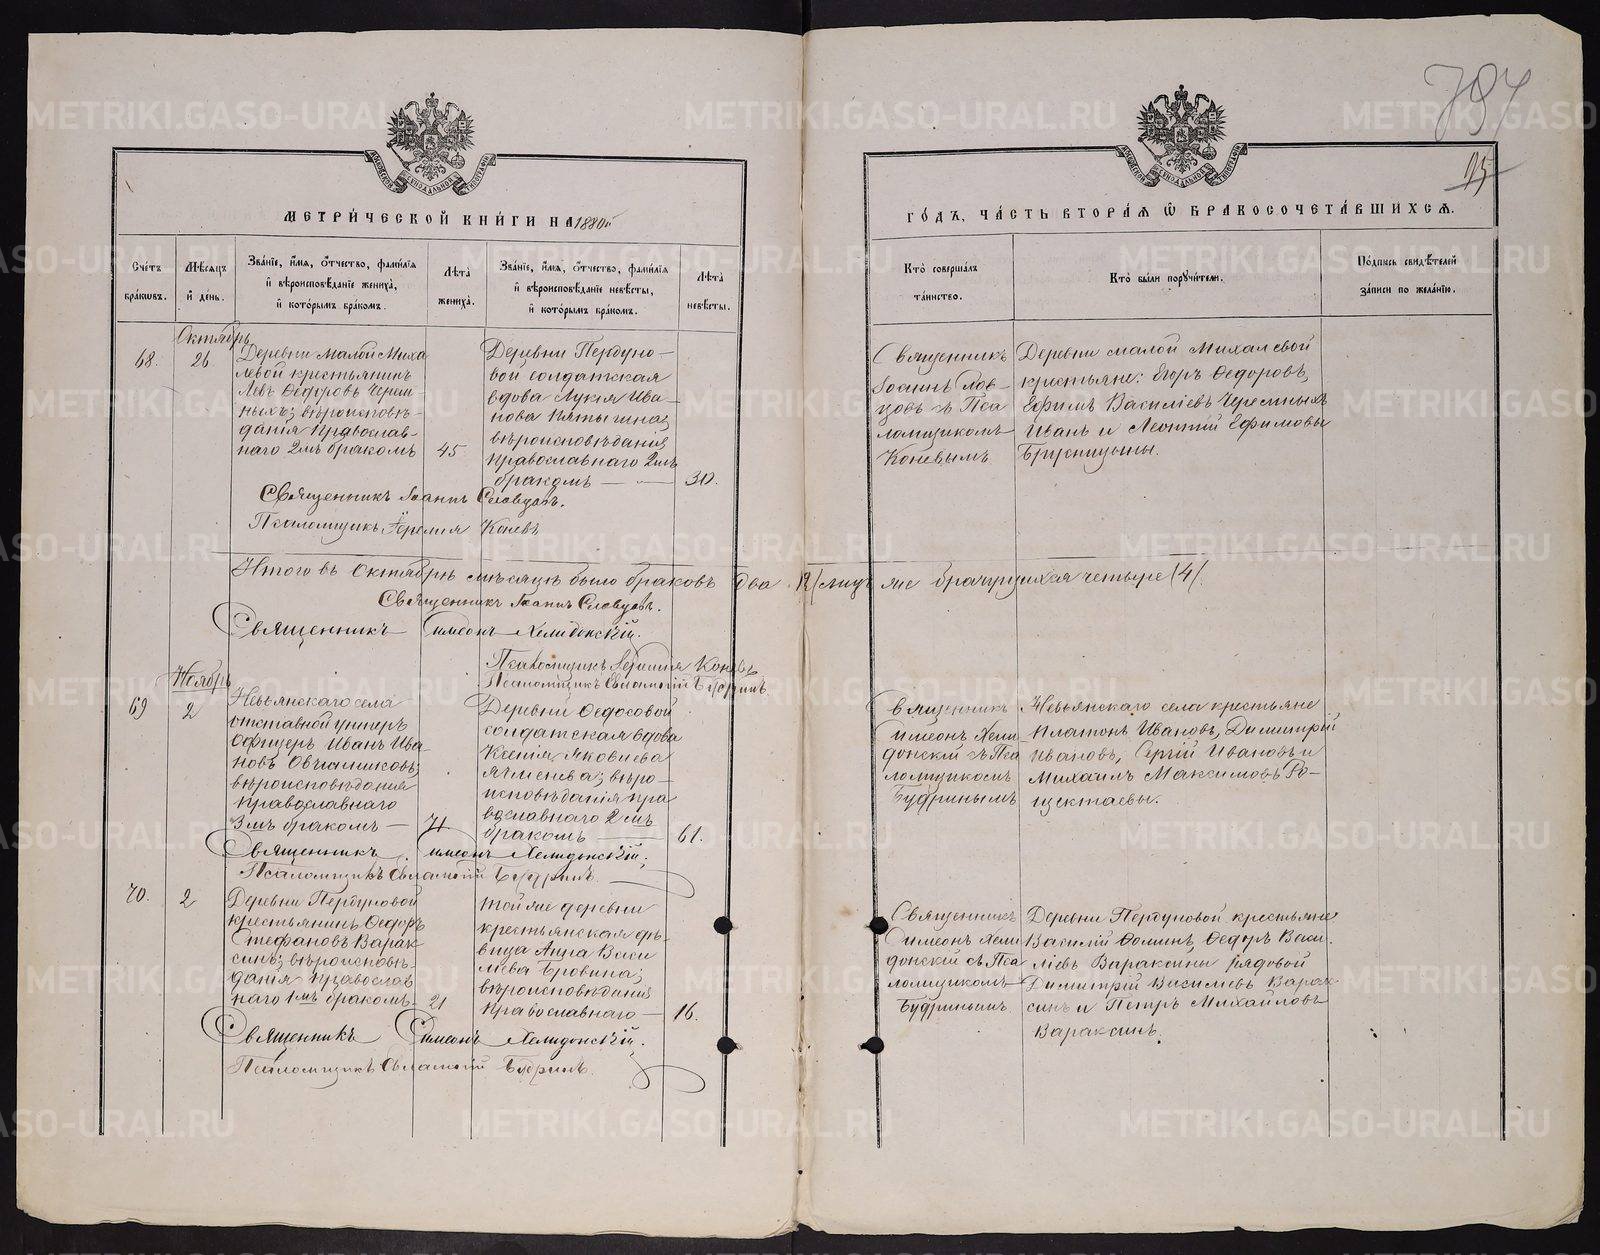 797
25
МЕТРИ́ЧЕСКОЙ КНИ́ГИ НА 1880й
ГО́ДЪ, ЧА́СТЬ ВТОРА́Я Ѡ БРАКОСОЧЕТА́ВШИХСЯ.
Сче́тъ бра́ковъ.
Мѣ́сяцъ и҆ де́нь.
Зва́нїе, и҆́мя, ѻ҆́тчество, фами́лїя и҆ вѣроисповѣ́данїе жениха̀, и҆ кото́рымъ бра́комъ.
Лѣта̀ жениха̀.
Зва́нїе, и҆́мя, ѻ҆́тчество, фами́лїя и҆ вѣроисповѣ́данїе невѣ́сты, и҆ кото́рымъ бра́комъ.
Лѣта̀ невѣ́сты.
Кто̀ соверша́лъ та́инство.
Кто̀ бы́ли поручи́тели.
По́дпись свидѣ́телей за́писи по жела́нїю.
Октябрь
68.
26
Деревни Малой Миха
левой крестьянинъ
Левъ Ѳедоровъ Черем-
ныхъ; вѣроисповѣ-
данія православ-
наго 2мъ бракомъ
45
Деревни Пердуно-
вой солдатская
вдова Лукія Ива-
нова Пятыгина;
вѣроисповѣданія
православнаго 2мъ
бракомъ
30.
Священникъ
Іоаннъ Слов-
цовъ съ Пса
ломщикомъ
Коневымъ
Деревни Малой Михалевой
крестьяне: Егоръ Ѳедоровъ,
Ефимъ Василіевъ Черемныхъ
Иванъ и Леонтій Ефимовы
Священникъ Іоаннъ Словцовъ.
Псаломщикъ Іеремія Коневъ
Итого въ Октябрѣ мѣсяцѣ было браковъ два /2/ лицъ же брачущихся четыре /4/.
Священникъ Іоаннъ Словцовъ.
Священникъ Симеонъ Хелидонскій.
Псаломщикъ Іеремія Коневъ
Псаломщикъ Евлампій Будринъ.
Ноябрь
69
2
Невьянскаго села
отставной унтеръ
офицеръ Иванъ Ива-
новъ Овчинниковъ;
вѣроисповѣданія
православнаго
3мъ бракомъ
71
Деревни Ѳедосовой
солдатская вдова
Ксенія Яковлева
Ячменева; вѣро-
исповѣданія пра
вославнаго 2мъ
бракомъ
61.
Священникъ
Симеонъ Хели
донскій съ Пса
ломщикомъ
Будринымъ
Невьянскаго села крестьяне
Платонъ Ивановъ, Димитрій
Ивановъ, Сергій Ивановъ и
Михаилъ Максимовъ Ро-
щектаевы.
Священникъ Симеонъ Хелидонскій.
Псаломщикъ Евлампій Будринъ.
70.
2
Деревни Пердуновой
крестьянинъ Ѳедоръ
Стефановъ Варак
синъ; вѣроисповѣ-
данія православ
наго 1мъ бракомъ
21
Той же деревни
крестьянская дѣ-
вица Анна Васи
лева Бровина;
вѣроисповѣданія
православнаго
16.
Священникъ
Симеонъ Хели
донскій съ Пса
ломщикомъ
Будринымъ.
Деревни Пердуновой крестьяне
Василій Ѳоминъ, Ѳедоръ Васи-
ліевъ Вараксины рядовой
Димитрій Василіевъ Варак-
синъ и Петръ Михайловъ
Вараксинъ.
Священникъ Симеонъ Хелидонскій.
Псаломщикъ Евлампій Будринъ.
METRIKI.GASO-URAL.RU